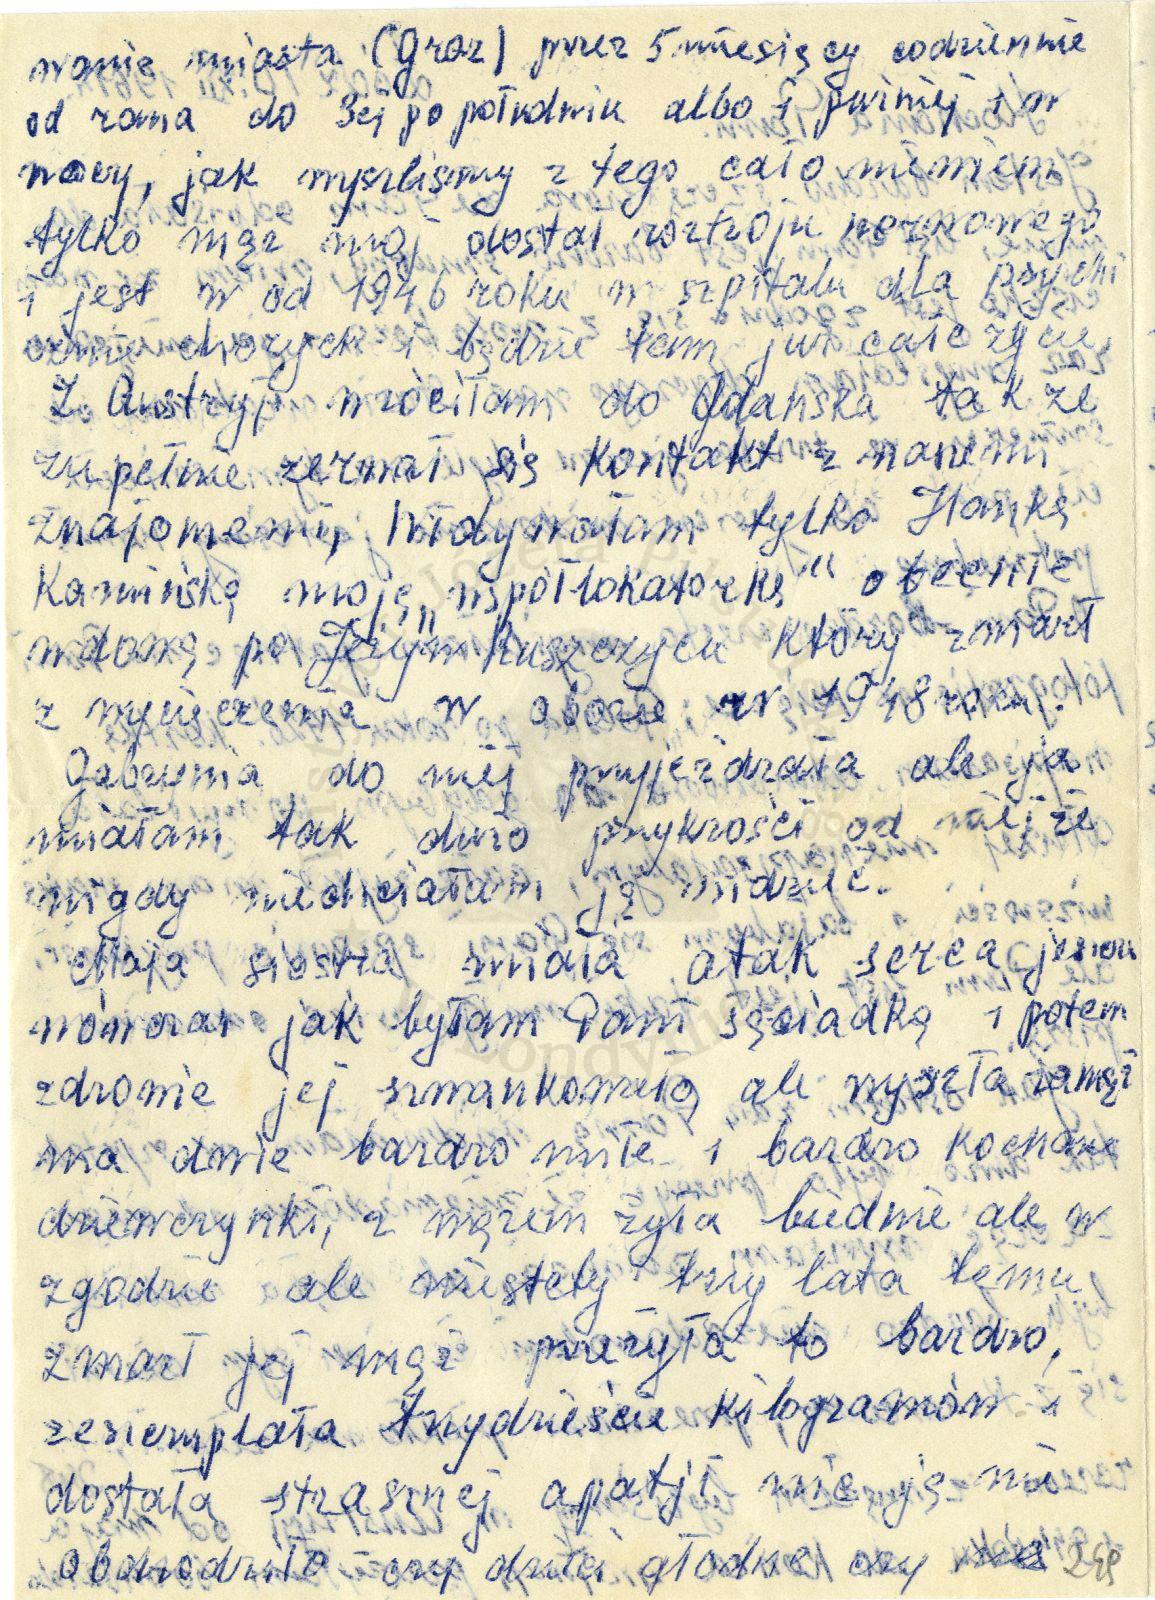 wanie miasta (Graz) przez 5 miesięcy codziennie
od rana do 3ej po południu albo i puiniej i w
nocy, jak wyszliśmy z tego cało niewiem,
tylko mąż mój dostał roztroju nerwowego
i jest w od 1946 roku w szpitalu dla psychi
cznie chorych i będzie tam już całe życie,
Z Austryji wróciłam do Gdańska tak że
zupełnie zerwał się kontakt z naszemi
znajomemi, Widywałam tylko Hankę
Kamińską moją „współlokatorkę“ obecnie
wdowę po Jerzym Ruszczycu który zmarł
z wycięczenia w obozie w 1948 roku.
Gabrynia do niej przyjeżdżała ale ja
miałam tak dużo przykrości od niej że
nigdy niechciałam ją widzieć.
Moja siostra miała atak serca jeszcze
wówczas jak byłam Pani sąsiadką i potem
zdrowie jej szwankowało, ale wyszła zamąż
ma dwie bardzo miłe i bardzo kochane
dziewczynki, z mężem żyła biednie ale w
zgodzie ale niestety trzy lata temu
zmarł jej mąż przeżyła to bardzo,
zeszczuplała trzydzieście kilogramów i
dostała strasznej apatji nic ją nie
obchodziło czy dzieci głodne czy nie
248